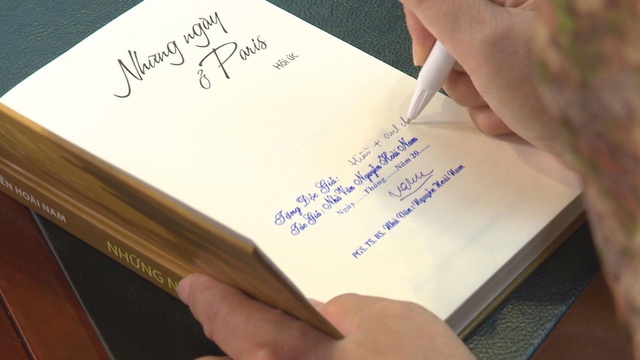 Những ngày
ở Paris
Hồi ức
Tặng Độc Giả:
Tác Giả: Nhà Văn Nguyễn Hoài Nam
Ngày......Tháng......Năm 20......
PGS. TS. BS. Nhà Văn: Nguyễn Hoài Nam
ỄN HOÀI NAM
NHỮNG N